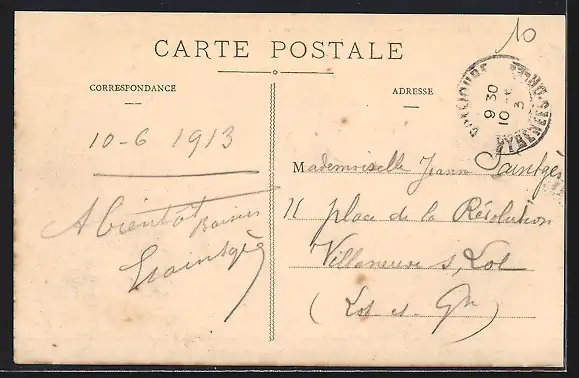 10
CARTE POSTALE
CORRESPONDANCE
ADRESSE
9 30
10 - 6
3
10-6 1913
A Bientot Baisers
Mademoiselle Jeanne Saintgès
11 place de la Révolution
Villeneuve s, Lot
(Lot et Gne)